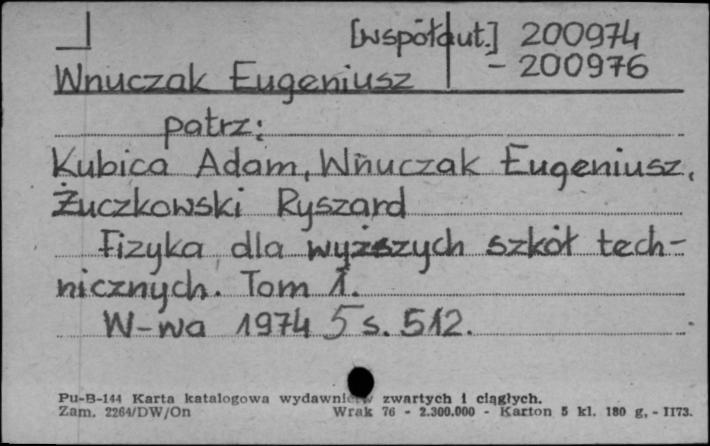 [współaut.] 200974
- 200976
Wnuczak Eugeniusz
patrz:
Kubica Adam, Wnuczak Eugeniusz,
Żuczkowski Ryszard
Fizyka dla wyższych szkół tech-
nicznych. Tom 1.
W-wa 1974 s. 512.
Pu-B-144 Karta katalogowa zwartych i ciągłych.
Zam. 2264/DW/On Wrak 76 - 2.300.000 - Karton 5 kl. 180 g, - 1173.